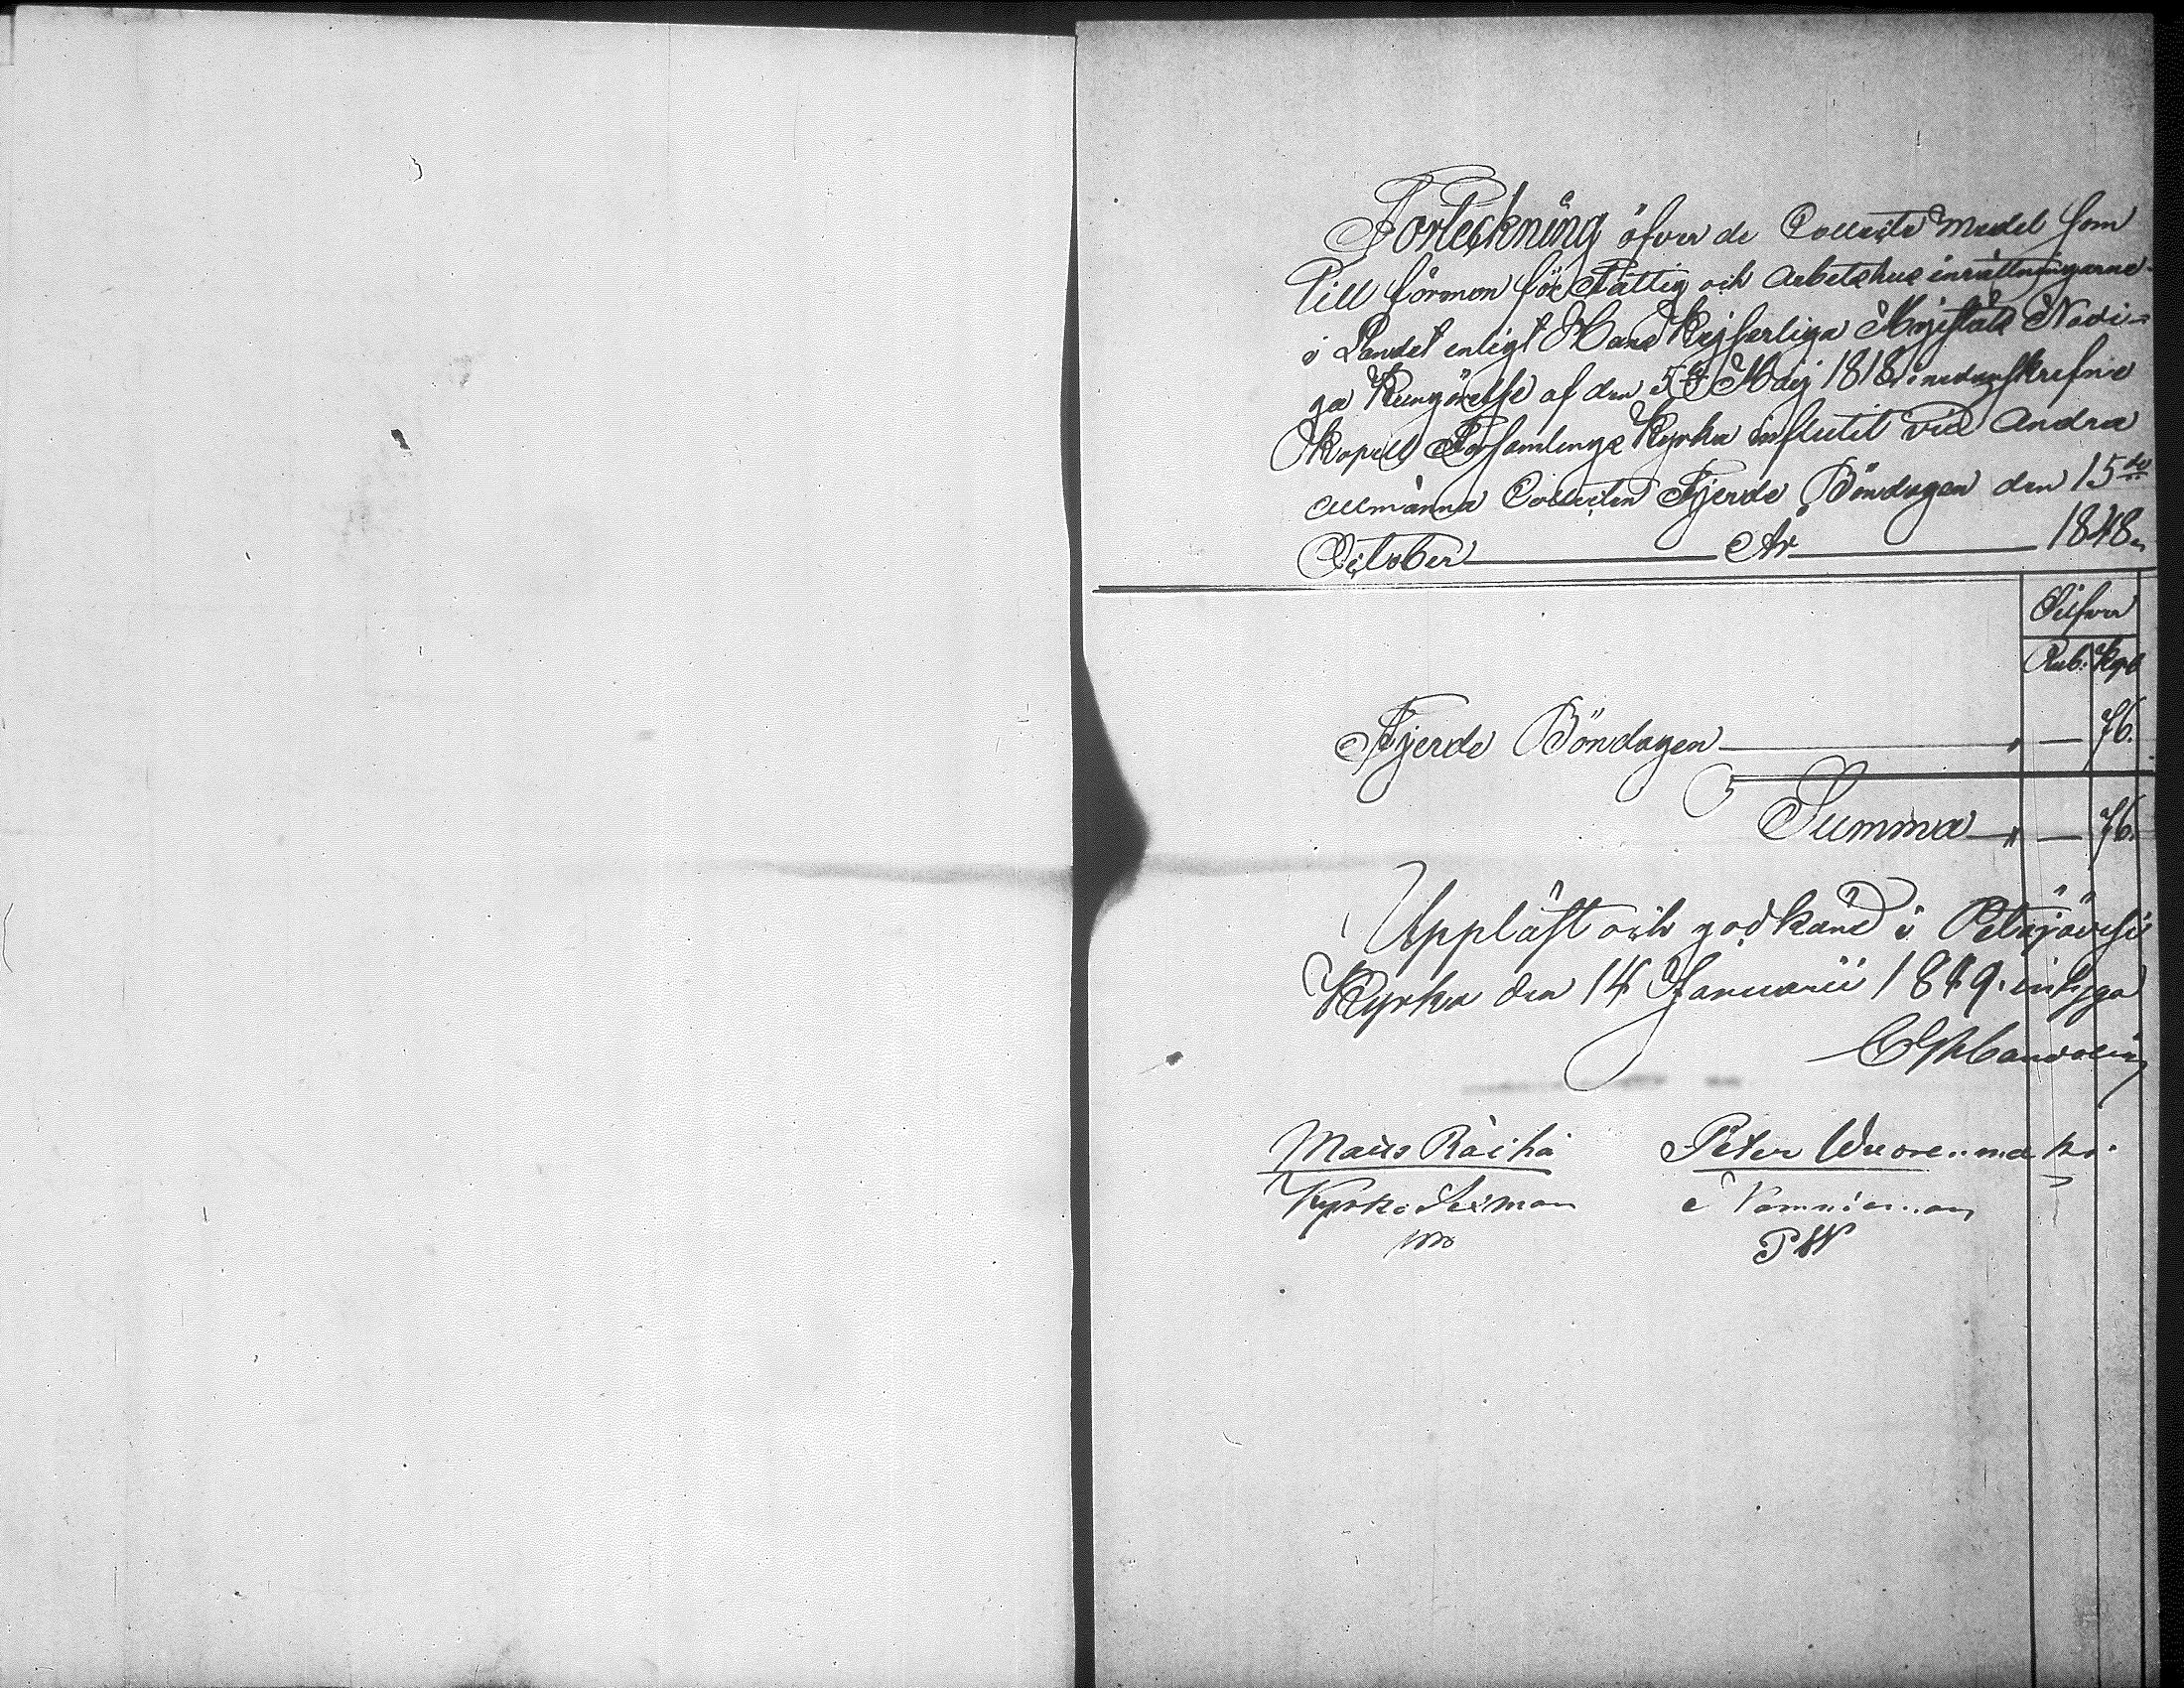 Förteckning öfver de Collecte medel som
till förmon för Fattig och Arbetshus inrättningarne
i Landet enligt Hans Kejserliga Majestäts Nådi=
ga Kungörelse af den 5te Maij 1818. i nedanskrefne
Kapell Församlings Kyrka influtit vid Andra
allmänna Collecten Fjerde Böndagen den 15de
October År 1848.
Silfver
Rub. Kop
Fjerde Böndagen " — 76.
Summa " — 76.
Uppläst och godkänd i Petäjävesi
Kyrka den 14 Januarii 1849. intyga
Mats Räihä Peter Wuorenmaki
Kyrko Sexman Nämndeman
PW